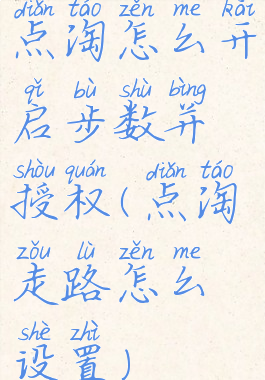 diǎn táo zěn me kāi
点淘怎么开
qǐ bù shù bìng
启步数并
shòu quán ( diǎn táo
授权(点淘
zǒu lù zěn me
走路怎么
shè zhì
设置)